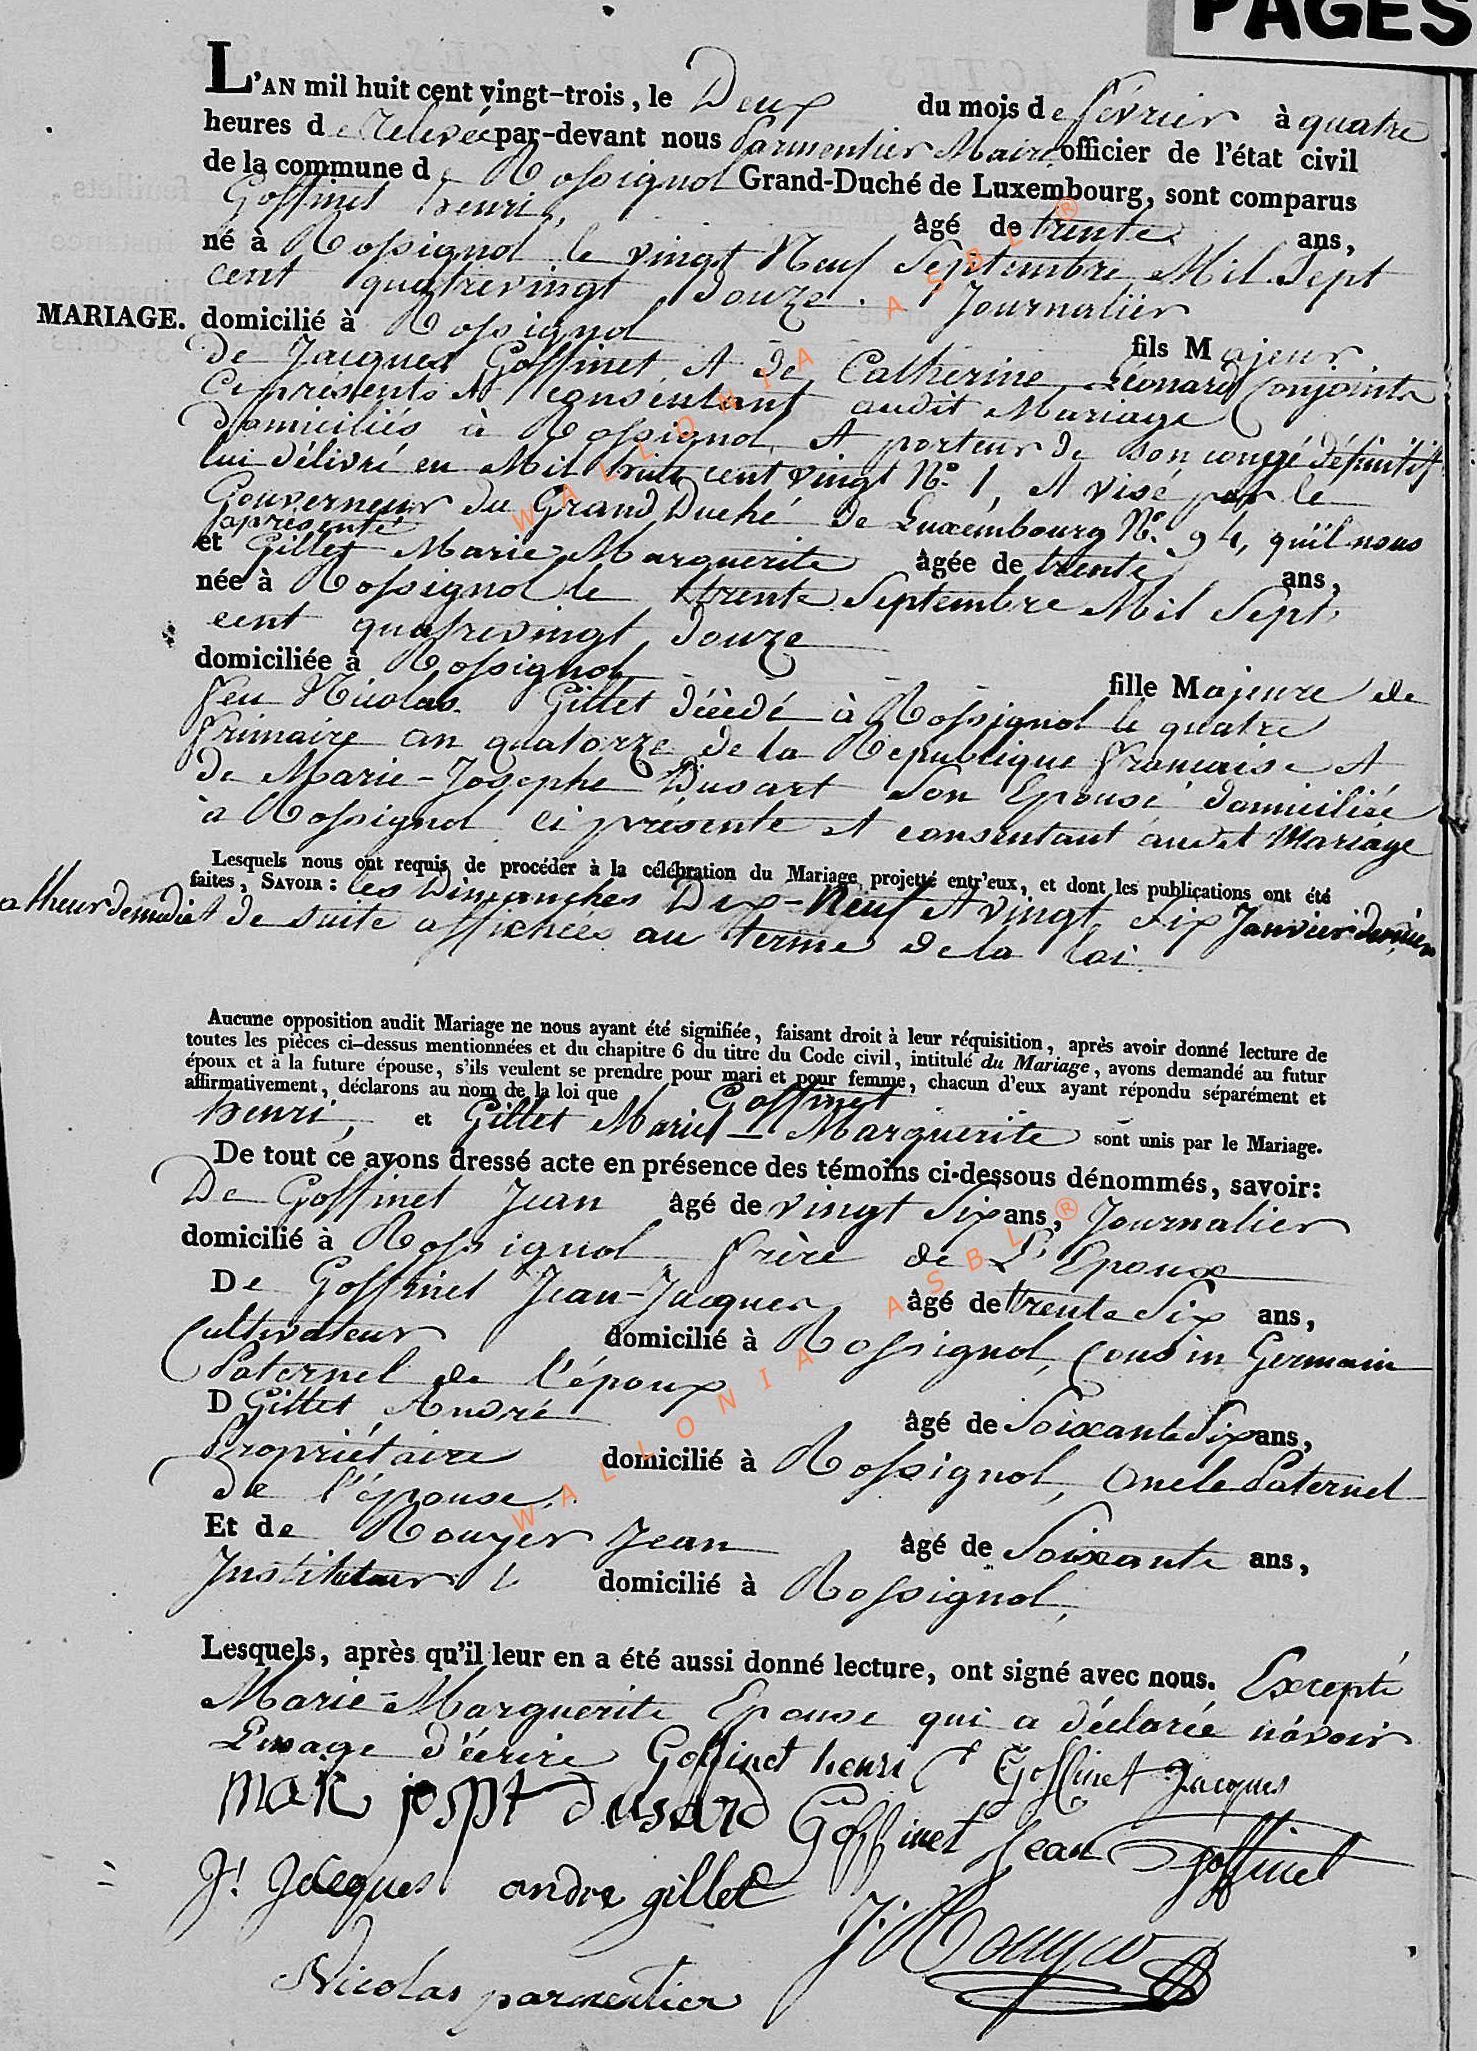 PAGES
L'AN mil huit cent vingt-trois, le Deux du mois de février à quatre
heures de Relevée par-devant nous Parmentier Maire officier de l'état civil
de la commune de Rossignol Grand-Duché de Luxembourg, sont comparus
Goffinet henri, âgé de trente ans,
né à Rossignol le vingt Neuf Septembre Mil Sept
cent quatrevingt Douze. Journalier
MARIAGE. domicilié à Rossignol fils Majeur
de Jacques Goffinet et de Catherine Léonard Conjoints
Ci présents et consentant audit Mariage
Domiciliés à Rossignol, et porteur de son congé définitif
lui délivré en Mil huit cent vingt N.° 1, et visé par le
Gouverneur du Grand Duché de Luxembourg N.° 94, qu'il nous
a présenté
et Gillet Marie Marguerite âgée de trente ans,
née à Rossignol le trente Septembre Mil Sept
cent quatrevingt douze
domiciliée à Rossignol fille Majeure de
feu Nicolas Gillet décédé à Rossignol le quatre
frimaire an quatorze de la République française et
de Marie-Josephe Dusart son Epouse domiciliée
à Rossignol ci présente et consentant audit Mariage
Lesquels nous ont requis de procéder à la célébration du Mariage projetté entr'eux, et dont les publications ont été
faites, SAVOIR : les Dimanches Dix-Neuf et vingt six Janvier dernier
a lheur de midi et de suite affichées au terme de la loi.
Aucune opposition audit Mariage ne nous ayant été signifiée, faisant droit à leur réquisition, après avoir donné lecture de
toutes les pièces ci-dessus mentionnées et du chapitre 6 du titre du Code civil, intitulé du Mariage, avons demandé au futur
époux et à la future épouse, s'ils veulent se prendre pour mari et pour femme, chacun d'eux ayant répondu séparément et
affirmativement, déclarons au nom de la loi que Goffinet
henri, et Gillet Marie-Marguerite sont unis par le Mariage.
De tout ce avons dressé acte en présence des témoins ci-dessous dénommés, savoir:
De Goffinet Jean âgé de vingt six ans, Journalier
domicilié à Rossignol frère de L'Epoux
De Goffinet Jean-Jacques âgé de trente Six ans,
Cultivateur domicilié à Rossignol, Cousin Germain
Paternel de l'époux
D Gillet André âgé de Soixante Six ans,
Propriétaire domicilié à Rossignol, Oncle Paternel
de l'épouse.
Et de Rouyer Jean âgé de Soixante ans,
Instituteur domicilié à Rossignol,
Lesquels, après qu'il leur en a été aussi donné lecture, ont signé avec nous. Excepté
Marie-Marguerite Epouse qui a déclarée n'avoir
L'usage d'écrire Goffinet henri Goffinet Jacques
marie jospt dusard Goffinet Jean Goffinet
J. Jacques andre gillet J. Rouyer
Nicolas parmentier
WALLONIA ASBL ®
WALLONIA ASBL ®